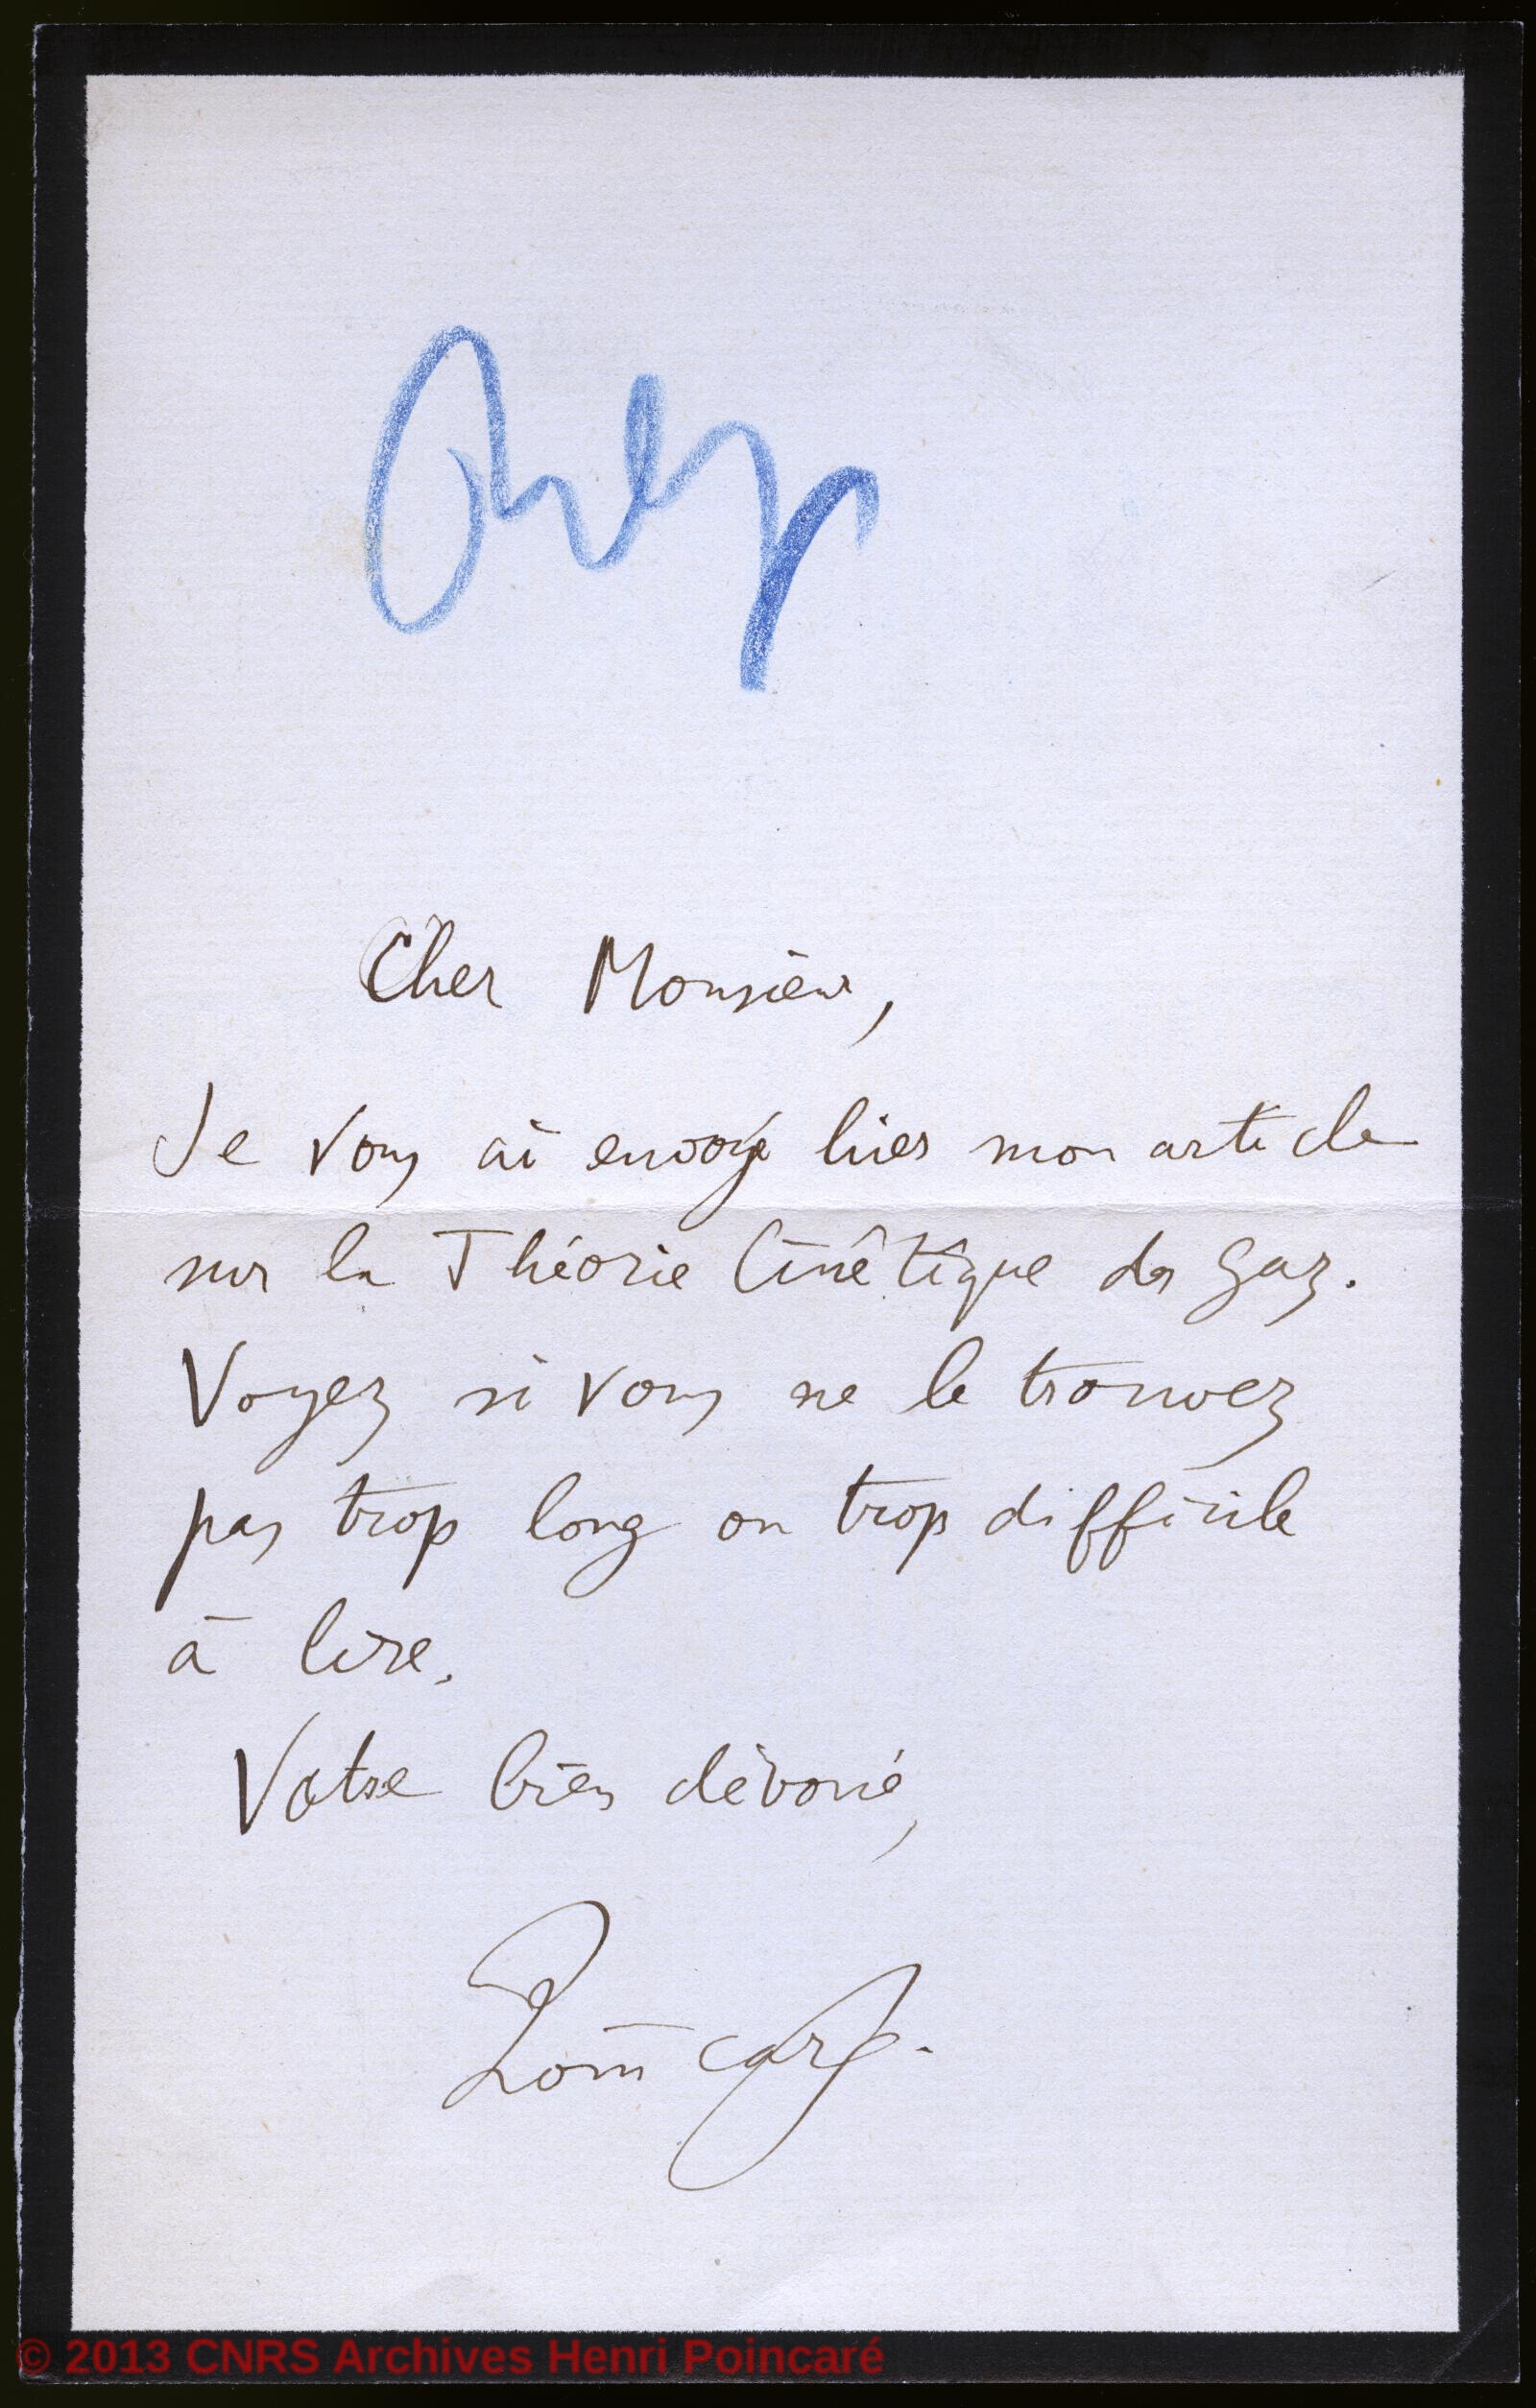 Cher Monsieur,
Je vous ai envoyé hier mon article
sur la Théorie Cinétique des Gaz.
Voyez si vous ne le trouvez
pas trop long ou trop difficile
à lire.
Votre bien dévoué,
Poincaré.
© 2013 CNRS Archives Henri Poincaré